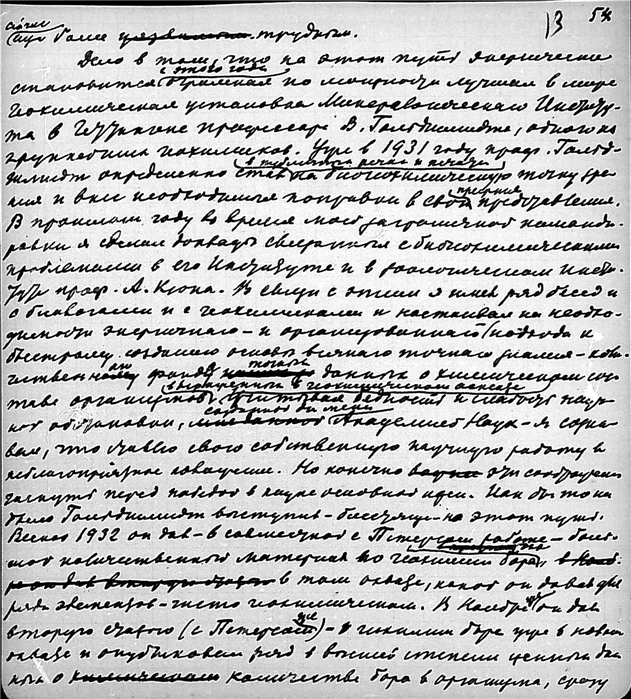 13 54
сейчас
еще более трудным.
Дело в том, что на этот путь энергически
с этого года
становится огромная по мощности лучшая в мире
геохимическая установка Минералогического Институ-
та в Геттингене профессора В. Гольдшмидта, одного из
крупнейших геохимиков. Уже в 1931 году проф. Гольд-
в публикациях
шмидт определенно стал на биогеохимическую точку зре-
прежние
ния и внес необходимые поправки в свои представления.
В прошлом году во время моей заграничной команди-
ровки я сделал доклады связанные с биогеохимическими
проблемами в его Институте и в зоологическом Инсти-
туте проф. А. Кюна. В связи с этим я имел ряд бесед и
с биологами и с геохимиками и настаивал на необхо-
димости энергичного - и организованного подхода к
быстрому созданию основы всякого точного знания - коли-
чественного фонда точных данных о химическом сос-
выраженных в геохимическом аспекте
таве организмов. Учитывая бедность и слабость науч-
ной обстановки, Академией Наук - я созна-
вал, что ставлю свою собственную научную работу в
неблагоприятное положение. Но конечно эти соображения
гаснут перед победой в науке основной идеи. Как бы то ни
было Гольдшмидт выступил на этот путь.
Весной 1932 он дал - в совместной с Петерсом работе - боль-
шой количественный материал по геохимии бора,
в том охвате, какой он давал для
ряда элементов - чисто геохимическом. В Ноябре он дал
вторую статью (с Петерсом) - о геохимии бора уже в новом
охвате и опубликовал ряд в высшей степени ценных дан-
ных о количестве бора в организмах, сразу